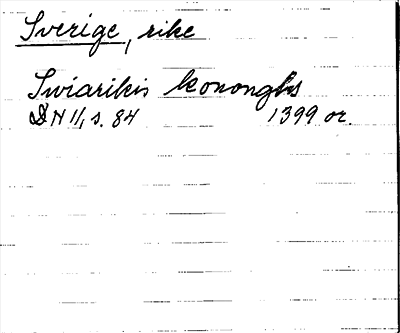 Sverige, rike
Swiarikis kononghs
DN II, s. 84 1399 or.